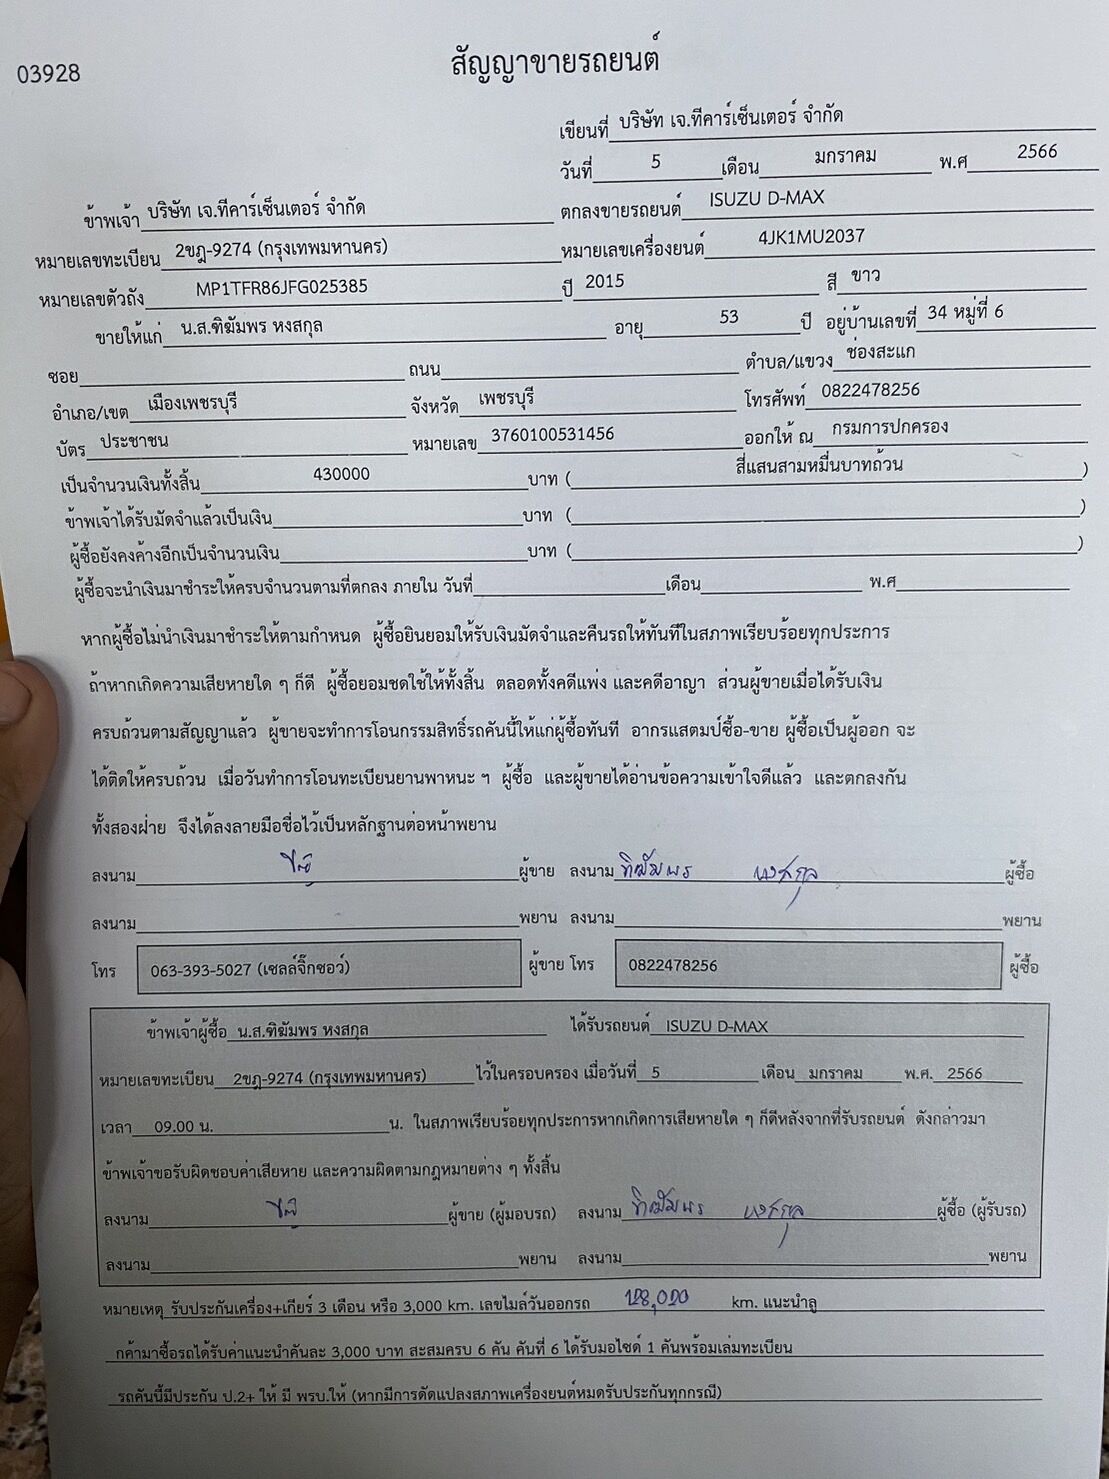 03928
สัญญาขายรถยนต์
เขียนที่ บริษัท เจ.ทีคาร์เซ็นเตอร์ จำกัด
วันที่ 5 เดือน มกราคม พ.ศ 2566
ข้าพเจ้า บริษัท เจ.ทีคาร์เซ็นเตอร์ จำกัด ตกลงขายรถยนต์ ISUZU D-MAX
หมายเลขทะเบียน 2ขฎ-9274 (กรุงเทพมหานคร) หมายเลขเครื่องยนต์ 4JK1MU2037
หมายเลขตัวถัง MP1TFR86JFG025385 ปี 2015 สี ขาว
ขายให้แก่ น.ส.ฑิฆัมพร หงสกุล อายุ 53 ปี อยู่บ้านเลขที่ 34 หมู่ที่ 6
ซอย ถนน ตำบล/แขวง ช่องสะแก
อำเภอ/เขต เมืองเพชรบุรี จังหวัด เพชรบุรี โทรศัพท์ 0822478256
บัตร ประชาชน หมายเลข 3760100531456 ออกให้ ณ กรมการปกครอง
เป็นจำนวนเงินทั้งสิ้น 430000 บาท ( สี่แสนสามหมื่นบาทถ้วน )
ข้าพเจ้าได้รับมัดจำแล้วเป็นเงิน บาท ( )
ผู้ซื้อยังคงค้างอีกเป็นจำนวนเงิน บาท ( )
ผู้ซื้อจะนำเงินมาชำระให้ครบจำนวนตามที่ตกลง ภายใน วันที่ เดือน พ.ศ
หากผู้ซื้อไม่นำเงินมาชำระให้ตามกำหนด ผู้ซื้อยินยอมให้รับเงินมัดจำและคืนรถให้ทันทีในสภาพเรียบร้อยทุกประการ
ถ้าหากเกิดความเสียหายใด ๆ ก็ดี ผู้ซื้อยอมชดใช้ให้ทั้งสิ้น ตลอดทั้งคดีแพ่ง และคดีอาญา ส่วนผู้ขายเมื่อได้รับเงิน
ครบถ้วนตามสัญญาแล้ว ผู้ขายจะทำการโอนกรรมสิทธิ์รถคันนี้ให้แก่ผู้ซื้อทันที อากรแสตมป์ซื้อ-ขาย ผู้ซื้อเป็นผู้ออก จะ
ได้ติดให้ครบถ้วน เมื่อวันทำการโอนทะเบียนยานพาหนะ ฯ ผู้ซื้อ และผู้ขายได้อ่านข้อความเข้าใจดีแล้ว และตกลงกัน
ทั้งสองฝ่าย จึงได้ลงลายมือชื่อไว้เป็นหลักฐานต่อหน้าพยาน
ลงนาม ผู้ขาย ลงนาม ฑิฆัมพร หงสกุล ผู้ซื้อ
ลงนาม พยาน ลงนาม พยาน
โทร 063-393-5027 (เซลล์จิ๊กซอว์) ผู้ขาย โทร 0822478256 ผู้ซื้อ
ข้าพเจ้าผู้ซื้อ น.ส.ฑิฆัมพร หงสกุล ได้รับรถยนต์ ISUZU D-MAX
หมายเลขทะเบียน 2ขฎ-9274 (กรุงเทพมหานคร) ไว้ในครอบครอง เมื่อวันที่ 5 เดือน มกราคม พ.ศ. 2566
เวลา 09.00 น. น. ในสภาพเรียบร้อยทุกประการหากเกิดการเสียหายใด ๆ ก็ดีหลังจากที่รับรถยนต์ ดังกล่าวมา
ข้าพเจ้าขอรับผิดชอบค่าเสียหาย และความผิดตามกฎหมายต่าง ๆ ทั้งสิ้น
ลงนาม ผู้ขาย (ผู้มอบรถ) ลงนาม ฑิฆัมพร หงสกุล ผู้ซื้อ (ผู้รับรถ)
ลงนาม พยาน ลงนาม พยาน
หมายเหตุ รับประกันเครื่อง+เกียร์ 3 เดือน หรือ 3,000 km. เลขไมล์วันออกรถ km. แนะนำลู
กค้ามาซื้อรถได้รับค่าแนะนำคันละ 3,000 บาท สะสมครบ 6 คัน คันที่ 6 ได้รับมอไซด์ 1 คันพร้อมเล่มทะเบียน
รถคันนี้มีประกัน ป.2+ ให้ มี พรบ.ให้ (หากมีการดัดแปลงสภาพเครื่องยนต์หมดรับประกันทุกกรณี)